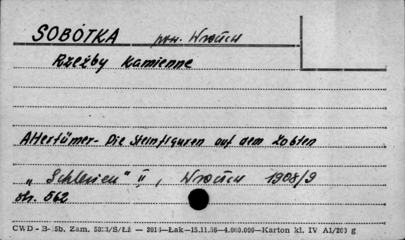 SOBÓTKA pow. Wrocław
Rzeźby kamienne
Altertümer - Die Steinfiguren auf dem Zobten
„Schlesien" II, Wrocław 1908/9
str. 562
CWD - B-5b. Zam. /S/Łż — Łak—15.11.56—4.000.000—Karton kl. IV A1/200 g